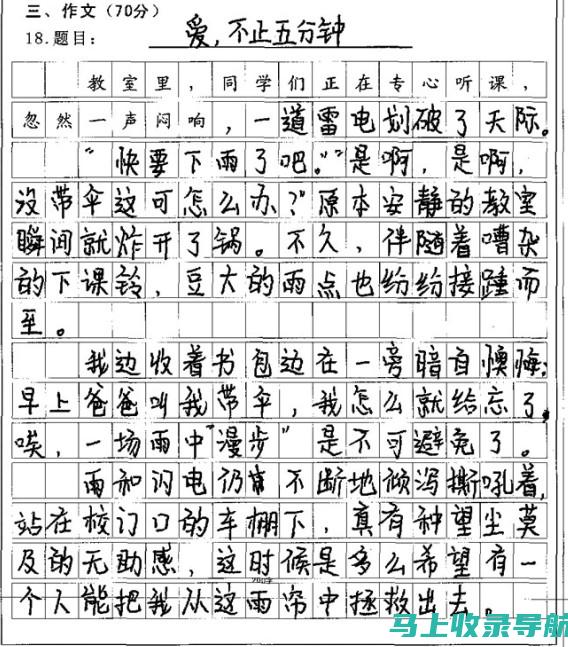 三、作文（70分）
18.题目：爱，不止五分钟
教室里，同学们正在专心听课，
忽然一声闷响，一道雷电划破了天际。
“快要下雨了吧。”“是啊，是啊，
没带伞这可怎么办？”原本安静的教室
瞬间就炸开了锅。不久，伴随着嘈杂
的下课铃，豆大的雨点也纷纷接踵而
至。
我边收着书包边在一旁暗自懊悔：
早上爸爸叫我带伞，我怎么就给忘了，
唉，一场雨中“漫步”是不可避免了。
雨和闪电仍旧不断地倾泻撕吼着，
站在校门口的车棚下，真有种望尘莫
及的无助感，这时候是多么希望有一
个人能把我从这雨帘中拯救出去。
马上收录导航